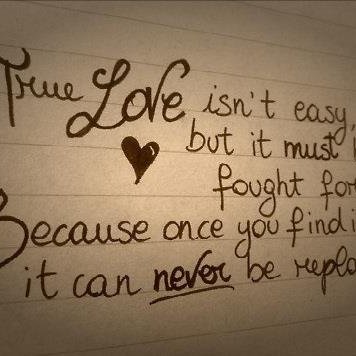 True Love isn't easy,
but it must
fought for
Because once you find i
it can never be repla